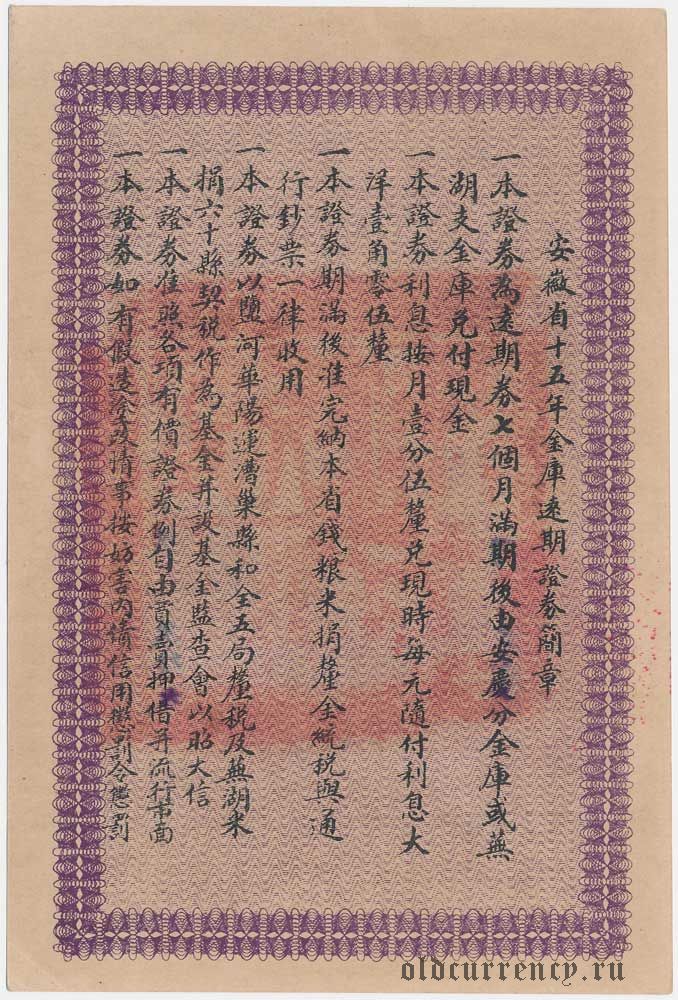 安徽省十五年金庫遠期證券簡章
一本證券為遠期券七個月滿期後由安慶分金庫或蕪
湖支金庫兌付現金
一本證券利息按月壹分伍釐兌現時每元隨付利息大
洋壹角零伍釐
一本證券期滿後准完納本省錢粮米捐釐金統稅與通
行鈔票一律收用
一本證券以鹽河華陽運漕巢縣和全五局釐稅及蕪湖米
捐六十縣契稅作為基金并設基金監查會以昭大信
一本證券准照各項有價證券例自由買賣押借并流行市面
一本證券如有假造塗改情事按妨害內債信用懲罰令懲罰
oldcurrency.ru